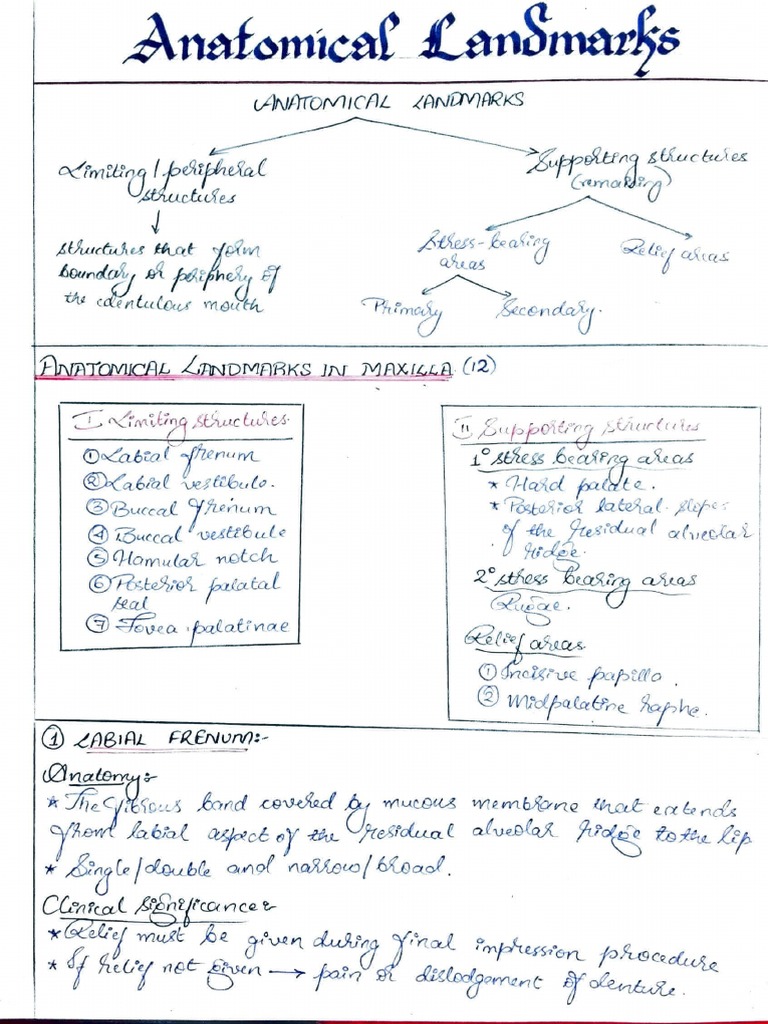 Anatomical Landmarks
ANATOMICAL LANDMARKS
Limiting/peripheral
structures
structures that form
boundary or periphery of
the edentulous mouth
Supporting structures
(remaining)
Stress-bearing
areas
Relief areas
Primary
Secondary.
ANATOMICAL LANDMARKS IN MAXILLA (12)
I Limiting structures
① Labial frenum
② Labial vestibule.
③ Buccal frenum
④ Buccal vestibule
⑤ Hamular notch
⑥ Posterior palatal
seal
⑦ Fovea palatinae
II Supporting structures
1° stress bearing areas
* Hard palate.
* Posterior lateral slopes
of the residual alveolar
ridge.
2° stress bearing areas
Rugae.
Relief areas
① Incisive papilla.
② Midpalatine raphe.
① LABIAL FRENUM:-
Anatomy:-
* The fibrous band covered by mucous membrane that extends
from labial aspect of the residual alveolar ridge to the lip
* Single/double and narrow/broad.
Clinical significance:-
* Relief must be given during final impression procedure
* If relief not given → pain or dislodgement of denture.